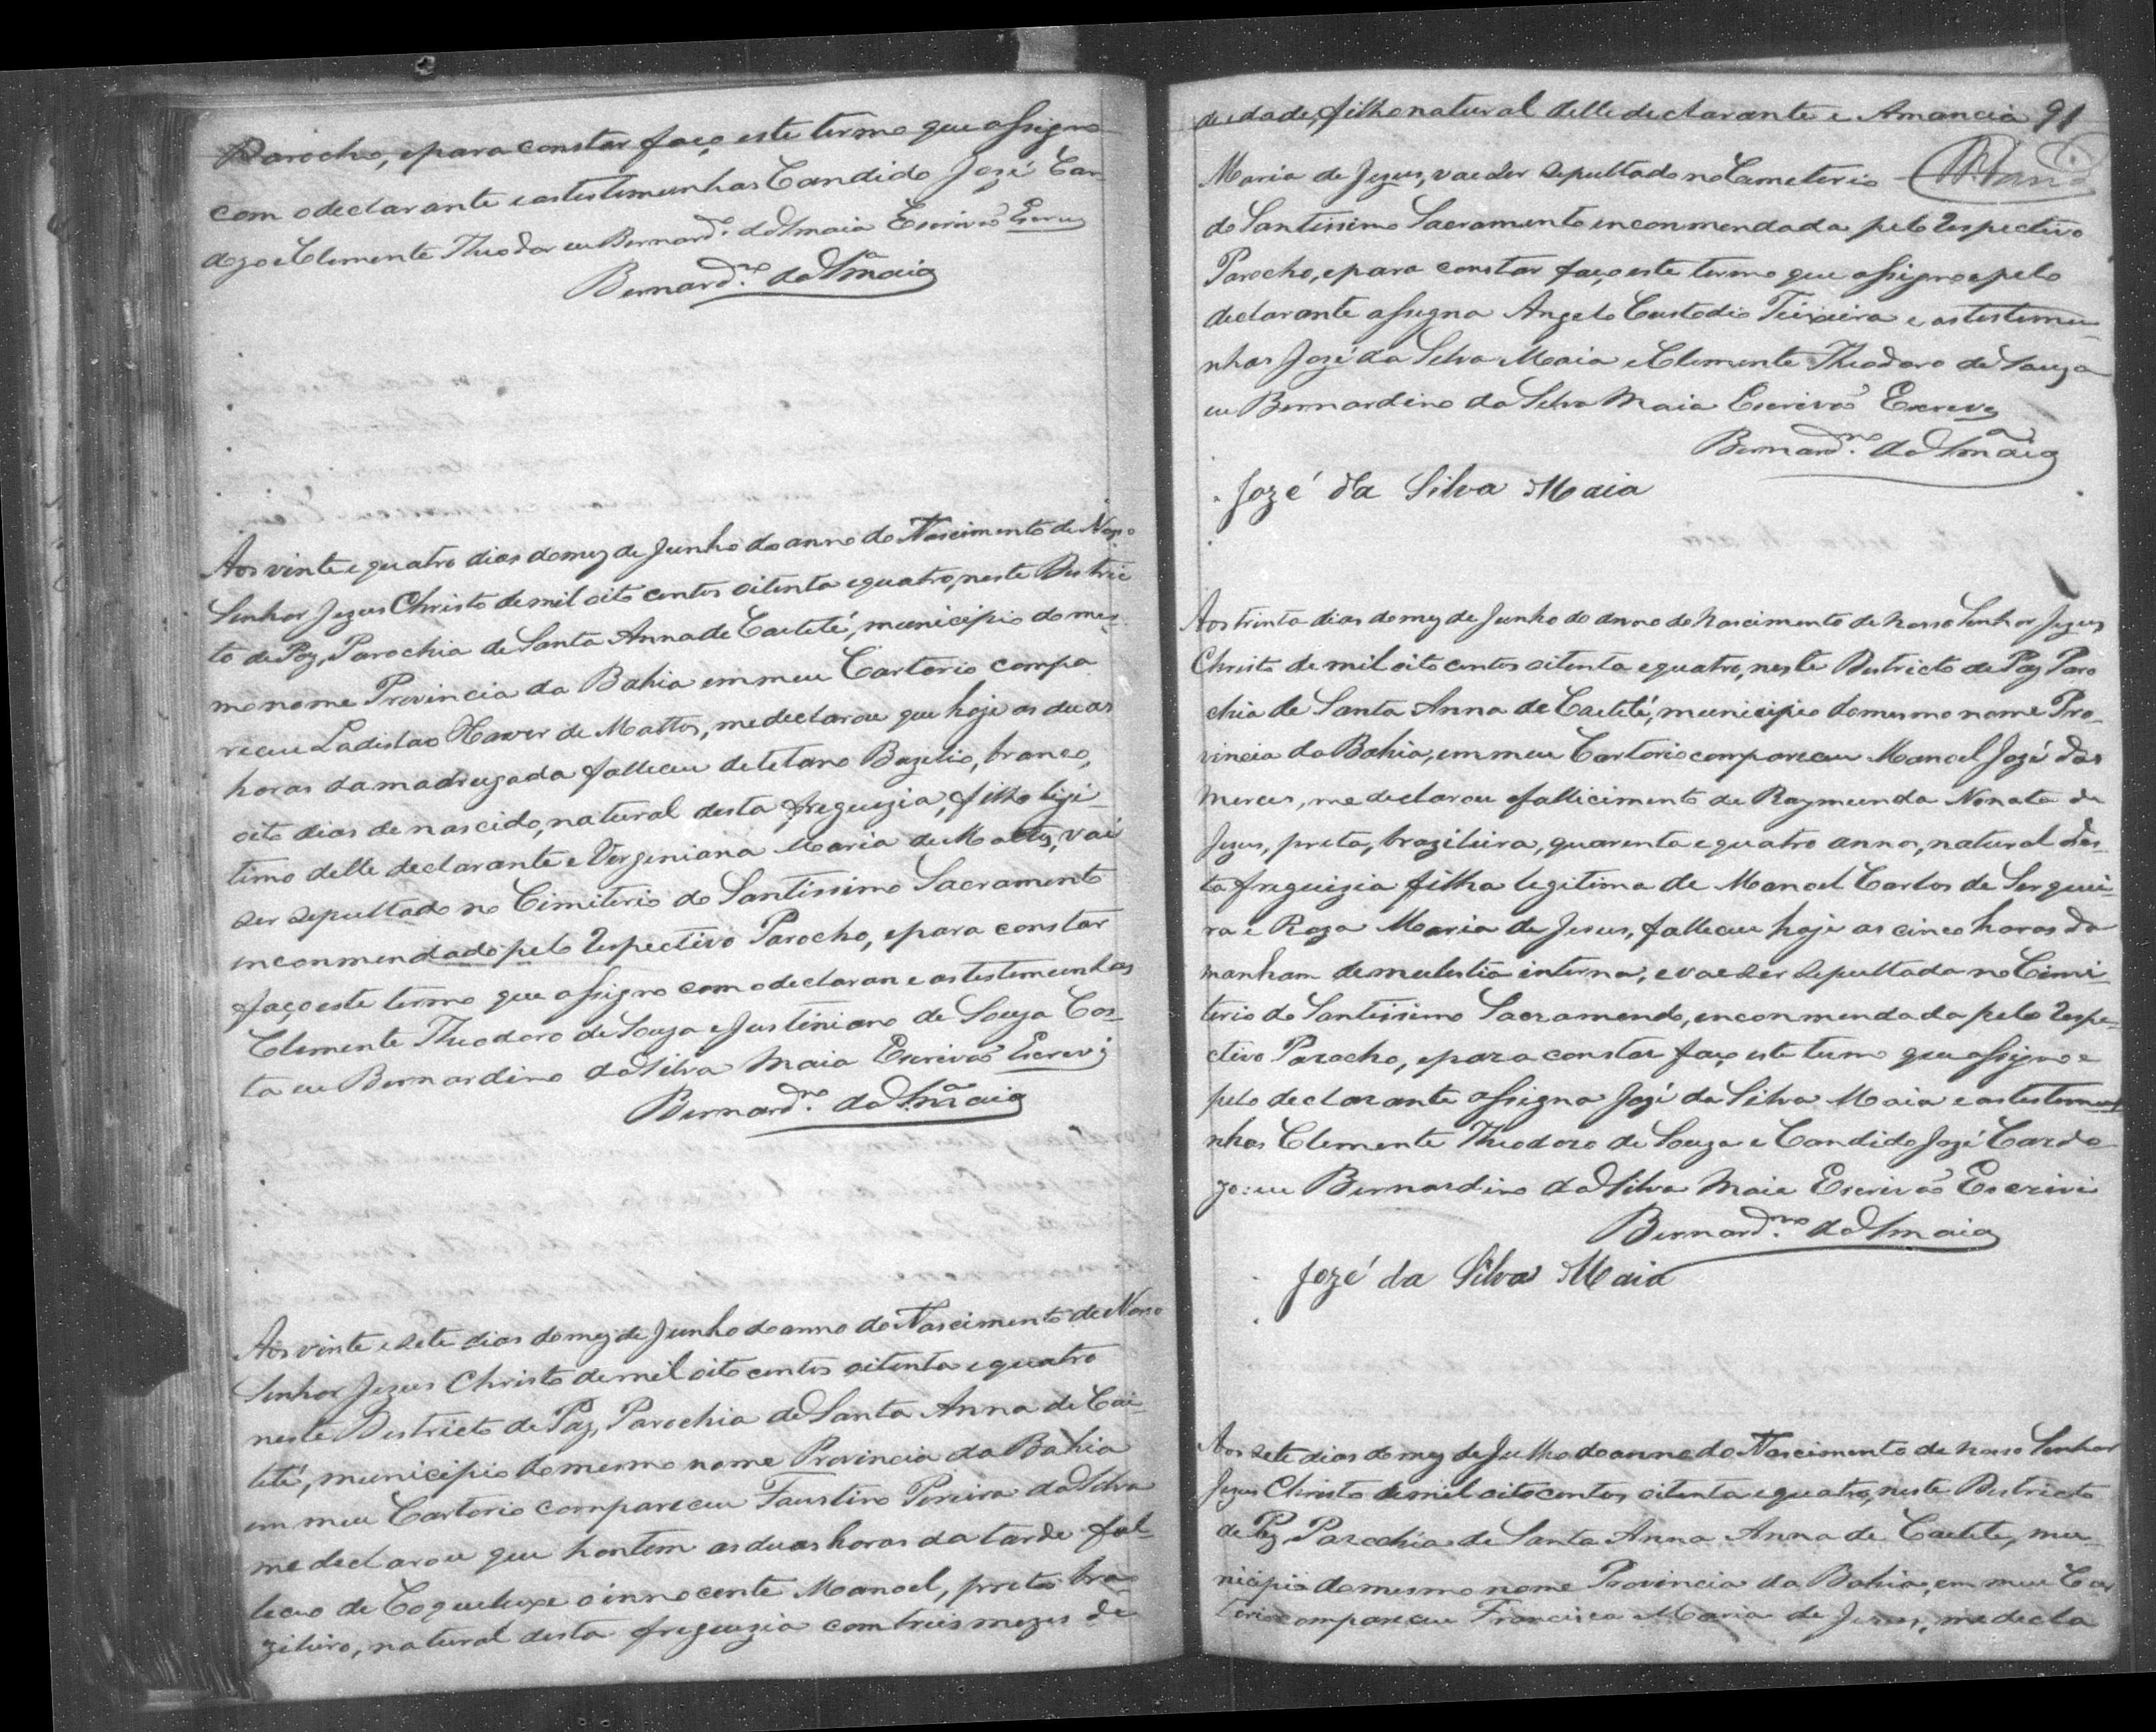 Parocho, e para constar faço este termo que assigno
com o declarante e as testemunhas Candido Jozé Car
dozo e Clemente Theodor eu Bernard.º da Sª Maia Escrivaõ Escrevy
Bernard.no da S.ª Maia
Aos vinte e quatro dias do mez de Junho do anno do Nascimento de Nosso
Senhor Jezus Christo de mil oito centos oitenta e quatro, neste Distric
to de Paz, Parochia de Santa Anna de Caeteté, municipio do mes
mo nome Provincia da Bahia em meu Cartorio compa
receu Ladislao Xaver de Mattos, me declarou que hoje as duas
horas da madrugada falleceu de tetano Bazilio, branco,
oito dias de nascido, natural desta freguezia, filho ligi-
timo delle declarante e Verginiana Maria de Mattos, vai
ser sepultado no Cimiterio do Santissimo Sacramento
inconmendado pelo respectivo Parocho, e para constar
faço este termo que assigno com o declaran e as testemunhas
Clemente Theodoro de Souza e Justiniano de Souza Cos-
ta eu Bernardino da Silva Maia Escrivaõ Escrevi
Bernard.no da S.ª Maia
Aos vinte e sete dias do mez de Junho do anno do Nascimento de Nosso
Senhor Jezus Christo de mil oito centos oitenta e quatro
neste Districto de Paz, Parochia de Santa Anna de Cae-
teté, municipio do mesmo nome Provincia da Bahia
em meu Cartorio compareceu Faustino Pereira da Silva
me declarou que hontem as duas horas da tarde fal-
leceo de Coqueluxe o innocente Manoel, preto bra
zileiro, natural desta freguezia com treis mezes de
de idade, filho natural delle declarante e Amancia 91
Maria de Jezus, vae ser sepultado no Cemeterio
do Santissimo Sacramento inconmendada pelo respectivo
Parocho, e para constar faço este termo que assigno e pelo
declarante assigna Angelo Custodio Teixeira e as testemu-
nhas José da Silva Maia e Clemente Theodoro de Souza
eu Bernardino da Silva Maia Escrivaõ Escrevy
Bernard.no da S.ª Maia
Jozé da Silva Maia
Aos trinta dias do mez de Junho do anno do nascimento de nosso Senhor Jezus
Christo de mil oito centos oitenta e quatro, neste Districto de Paz Paro
chia de Santa Anna de Caeteté, municipio do mesmo nome Pro-
vincia da Bahia, em meu Cartorio compareceu Manoel Jozé das
Merces, me declarou o fallicimento de Raymunda Nonata de
Jezus, preta, brazileira, quarenta e quatro annos, natural des-
ta freguizia filha legitima de Manoel Carlos de Serquei-
ra e Roza Maria de Jesus, falleceu hoje as cinco horas da
manham de mulestia interna, e vae ser sepultada no Cimi-
terio do Santissimo Sacramendo, enconmendada pelo respe-
ctivo Parocho, e para constar faço este termo que assigno e
pelo declarante assigna Jozé da Silva Maia e as testemu
nhas Clemente Theodoro de Souza e Candido Jozé Cardo-
zo: eu Bernardino da Silva Maia Escrivaõ Escrivi
Bernard.no da S.ª Maia
Jozé da Silva Maia
Aos sete dias do mez de Julho do anno do Nascimento de nosso Senhor
Jezus Christo de mil oito centos oitenta e quatro, neste Districto
de Paz Parochia de Santa Anna Anna de Caetete, mu-
nicipio do mesmo nome Provincia da Bahia, em meu Car
torio compareceu Francisca Maria de Jesus, me decla